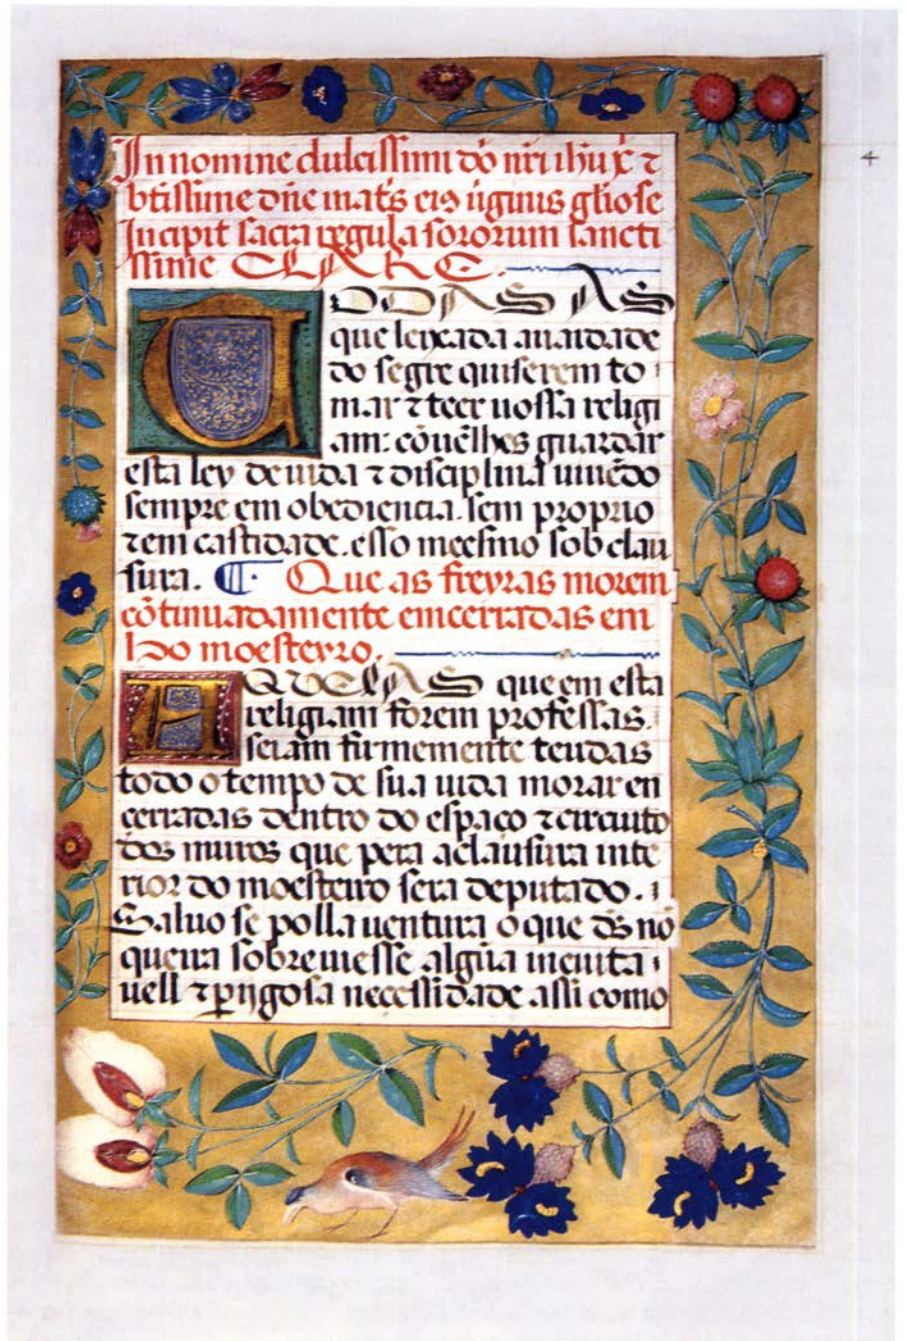 4
In nomine dulcissimi dõ nr̃i ihũ xp̃ ⁊
btissime dñe mat̃s eiꝯ ũginis gl̃iose
Incipit sacra regula sororum sancti
ssime CLARE.
TODAS AS
que leixada a uaidade
do segre quiserem to
mar ⁊ teer uossa religi
am: cõuẽ lhes guardar
esta ley de uida ⁊ disciplina uiuẽdo
sempre em obediencia. sem proprio
⁊ em castidade. esso meesmo sob clau
sura. ¶ Que as freyras morem
cõtinuadamente emcerradas em
ho moesteyro.
AQUELAS que em esta
religiam forem professas.
seiam firmemente teudas
todo o tempo de sua uida morar en
cerradas dentro do espaço ⁊ circuito
dos muros que pera a clausura inte
rior do moesteiro sera deputado.
Saluo se polla uentura o que d̃s nõ
queira sobreuiesse algũa ineuita
uell ⁊ ꝑijgosa necessidade assi como